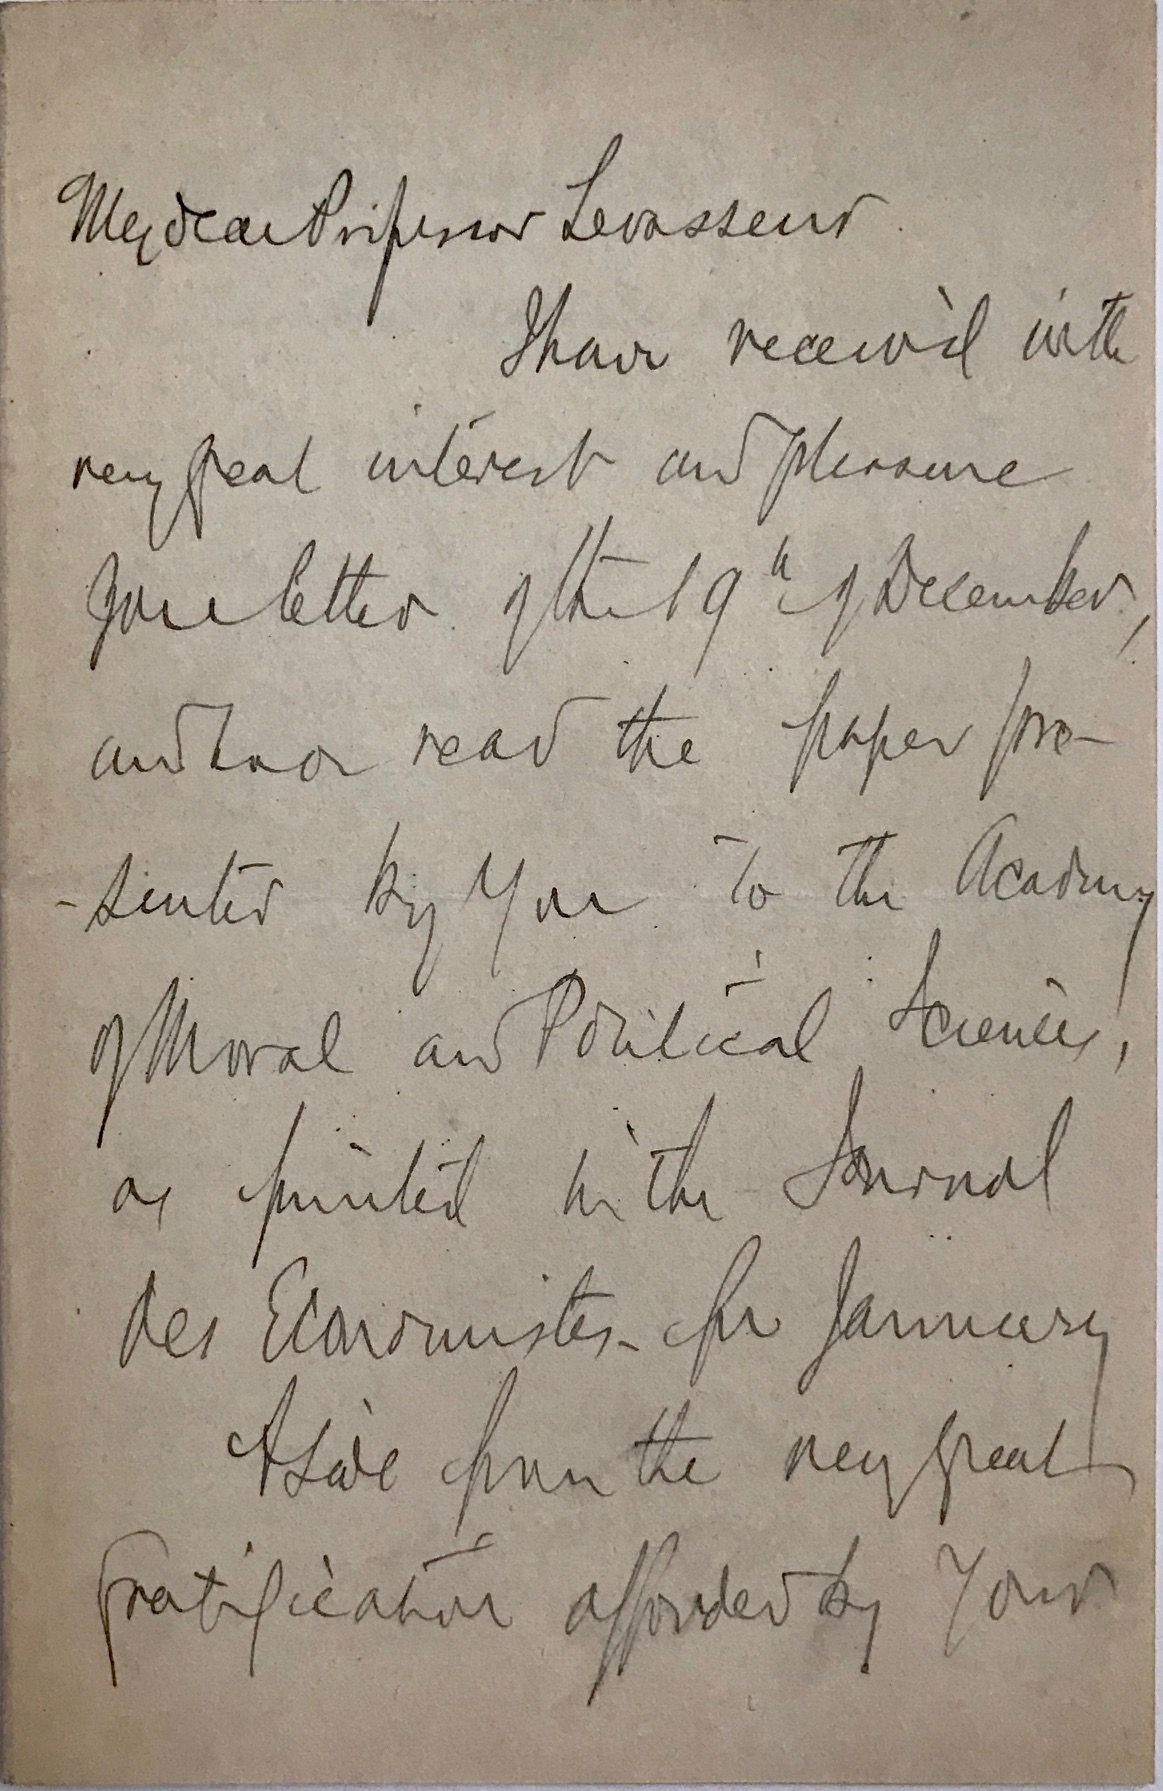 My dear Professor Levasseur
I have received with
very great interest and pleasure
your letter of the 19th of December,
and have read the paper pre-
-sented by you to the Academy
of Moral and Political Sciences,
as printed in the Journal
des Economistes - for January
Aside from the very great
gratification afforded by your